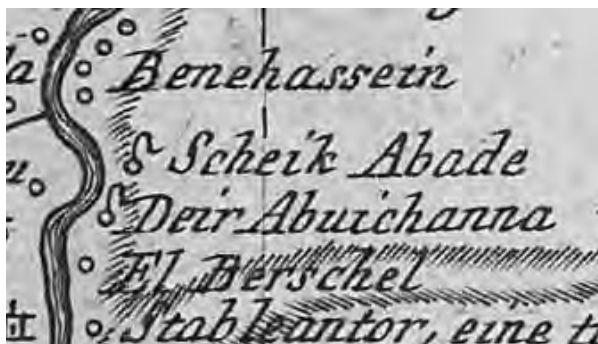 Benehassein
Scheik Abade
Deir Abuichanna
El Berschel
Stableantor, eine